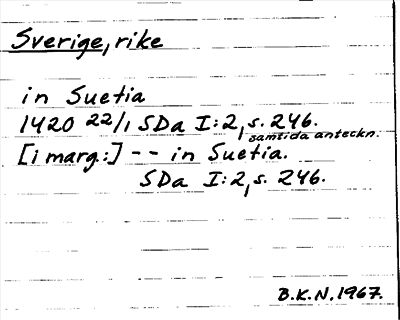 Sverige, rike
in Suetia
1420 22/1 SDa I:2, s. 246.
samtida anteckn.
[i marg.:] -- in Suetia.
SDa I:2, s. 246.
B.K.N. 1967.